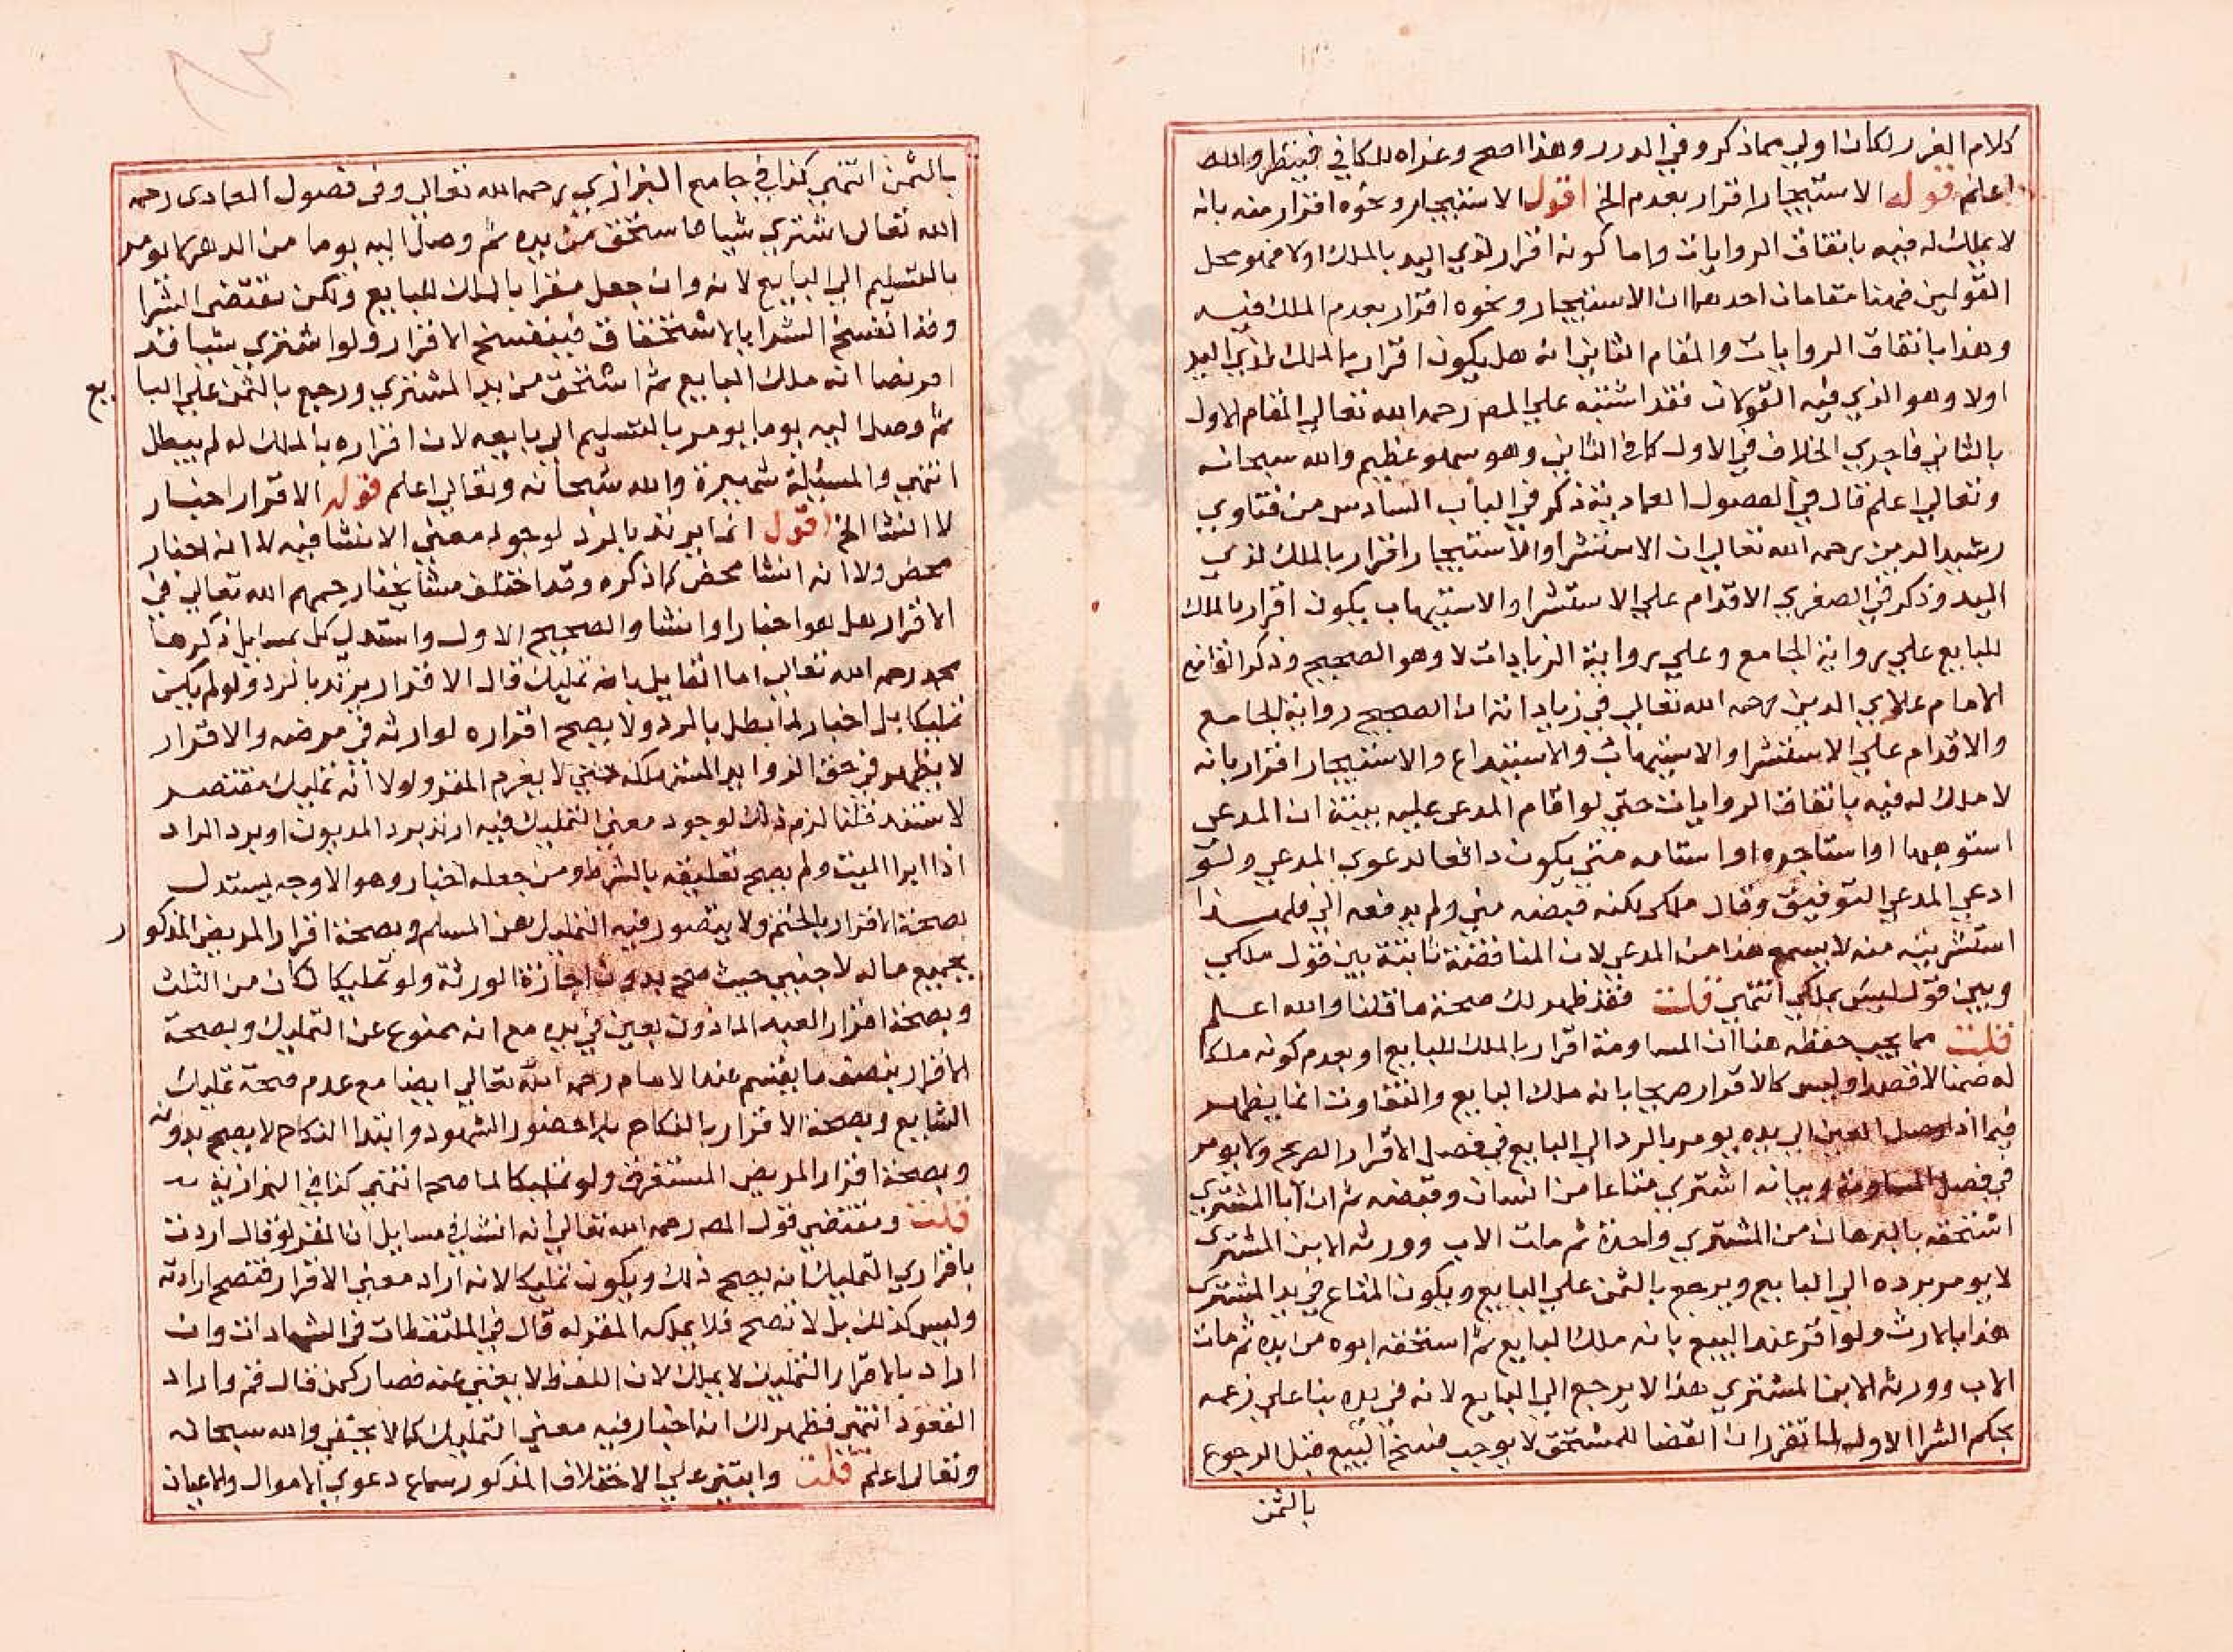 كلام الغرر لكان اولي مما ذكر وفي الدرر وهذا اصح وعزاه للكافي فينظر والله
اعلم قوله الاستيجار اقرار بعدم الخ اقول الاستيجار ونحوه اقرار منه بانه
لا يملك له فيه باتفاق الروايات واما كونه اقرار لذي اليد بالملك اولا فهو محل
القولين فهنا مقامات احدهما ان الاستيجار ونحوه اقرار بعدم الملك فيه
وهذا باتفاق الروايات والمقام الثاني انه هل يكون اقرار بالملك لذي اليد
اولا وهو الذي فيه القولان فقد اشتبه علي المص رحمه الله تعالي المقام الاول
بالثاني فاجري الخلاف في الاول كما في الثاني وهو سهو عظيم والله سبحانه
وتعالي اعلم قال في الفصول العمادية ذكر في الباب السادس من فتاوي
رشيد الدين رحمه الله تعالي ان الاستشرا والاستيجار اقرار بالملك لذي
اليد وذكر في الصغري الاقدام علي الاستشرا والاستيهاب يكون اقرار بالملك
للبايع علي رواية الجامع وعلي رواية الزيادات لا وهو الصحيح وذكر القاضي
الامام علاي الدين رحمه الله تعالي في زياداته ان الصحيح رواية الجامع
والاقدام علي الاستشرا والاستيهاب والاستيداع والاستيجار اقرار بانه
لا ملك له فيه باتفاق الروايات حتي لو اقام المدعي عليه بينة ان المدعي
استوهبها او استاجره او استامه مني يكون دافعا لدعوي المدعي ولو
ادعي المدعي التوفيق وقال ملكي لكنه قبضه مني ولم يدفعه الي فلهذا
استشريته منه لا يسمع هذا من المدعي لان المناقضة ثابتة بين قول ملكي
وبين قول ليس بملكي انتهي قلت فقد ظهر لك صحة ما قلنا والله اعلم
قلت مما يجب حفظه هنا ان المساومة اقرار بالملك للبايع او بعدم كونه ملكا
له ضمنا لا قصدا وليس كالاقرار صريحا بانه ملك البايع والتفاوت انما يظهر
فيما اذا وصل العين الي يده يومر بالرد الي البايع في فصل الاقرار الصريح ولا يومر
في فصل المساومة وبيانه اشتري متاعا من انسان وقبضه ثم ان ابا المشتري
استحقه بالبرهان من المشتري واخذه ثم مات الاب وورثه الابن المشتري
لا يومر برده الي البايع ويرجع بالثمن علي البايع ويكون المتاع في يد المشتري
هذا بالارث ولو اقر عند البيع بانه ملك البايع ثم استحقه ابوه من يده ثم مات
الاب وورثه الابن المشتري هذا لا يرجع الي البايع لانه في يده بنا علي زعمه
بحكم الشرا الاول لما تقرر ان القضا للمستحق لا يوجب فسخ البيع قبل الرجوع
بالثمن
بالثمن انتهي كذا في جامع البزازي رحمه الله تعالي وفي فصول العمادي رحمه
الله تعالي اشتري شيا فاستحق من يده ثم وصل اليه يوما من الدهر لا يومر
بالتسليم الي البايع لانه وان جعل مقرا بالملك للبايع ولكن بمقتضي الشرا
وقد انفسخ الشرا بالاستحقاق فينفسخ الاقرار ولو اشتري شيا قد
اقر نصا انه ملك البايع ثم استحق من يد المشتري ورجع بالثمن علي البا يع
ثم وصل اليه يوما يومر بالتسليم الي بايعه لان اقراره بالملك له لم يبطل
انتهي والمسئلة شهيرة والله سبحانه وتعالي اعلم قوله الاقرار اخبار
لا انشا الخ اقول انما يرتد بالرد لوجود معني الانشا فيه لا انه اخبار
محض ولا انه انشا محض كما ذكره وقد اختلف مشايخنا رحمهم الله تعالي في
الاقرار هل هو اخبار او انشا والصحيح الاول واستدل كل بمسايل ذكرها
محمد رحمه الله تعالي اما القايل بانه تمليك قال الاقرار يرتد بالرد ولو لم يكن
تمليكا بل اخبار لما بطل بالرد ولا يصح اقراره لوارثه في مرضه والاقرار
لا يظهر في حق الزوايد المستهلكة حتي لا يغرم المقر ولولا انه تمليك مقتصر
لا ستند قلنا لزم ذلك لوجود معني التمليك فيه ارتد برد المديون او برد الوارث
اذا ابرا الميت ولم يصح تعليقه بالشرط ومن جعله اخبار وهو الاوجه يستدل
بصحة الاقرار بالخمر ولا يتصور فيه التمليك من المسلم وبصحة اقرار المريض المذكور
بجميع ماله لاجنبي حيث صح بدون اجازة الورثة ولو تمليكا لكان من الثلث
وبصحة اقرار العبد الماذون بعين في يده مع انه ممنوع عن التمليك وبصحة
الاقرار بنصف ما يقسم عند الامام رحمه الله تعالي ايضا مع عدم صحة تمليك
الشايع وبصحة الاقرار بالنكاح بلا حضور الشهود وابتدا النكاح لا يصح بدونه
وبصحة اقرار المريض المستغرق ولو تمليكا لما صح انتهي كذا في البزازية
قلت ومقتضي قول المص رحمه الله تعالي انه انشا في مسايل ان المقر لو قال اردت
باقراري التمليك انه يصح ذلك ويكون تمليكا لانه اراد معني الاقرار فتصح ارادته
وليس كذلك بل لا تصح فلا يملكه المقر له قال في الملتقطات في الشهادات وان
اراد بالاقرار التمليك لا يملك لان اللفظ لا يغني عنه فصار كمن قال قم واراد
القعود انتهي فظهر لك انه اخبار فيه معني التمليك كما لا يخفي والله سبحانه
وتعالي اعلم قلت وابتني علي الاختلاف المذكور سماع دعوي الاموال والاعيان